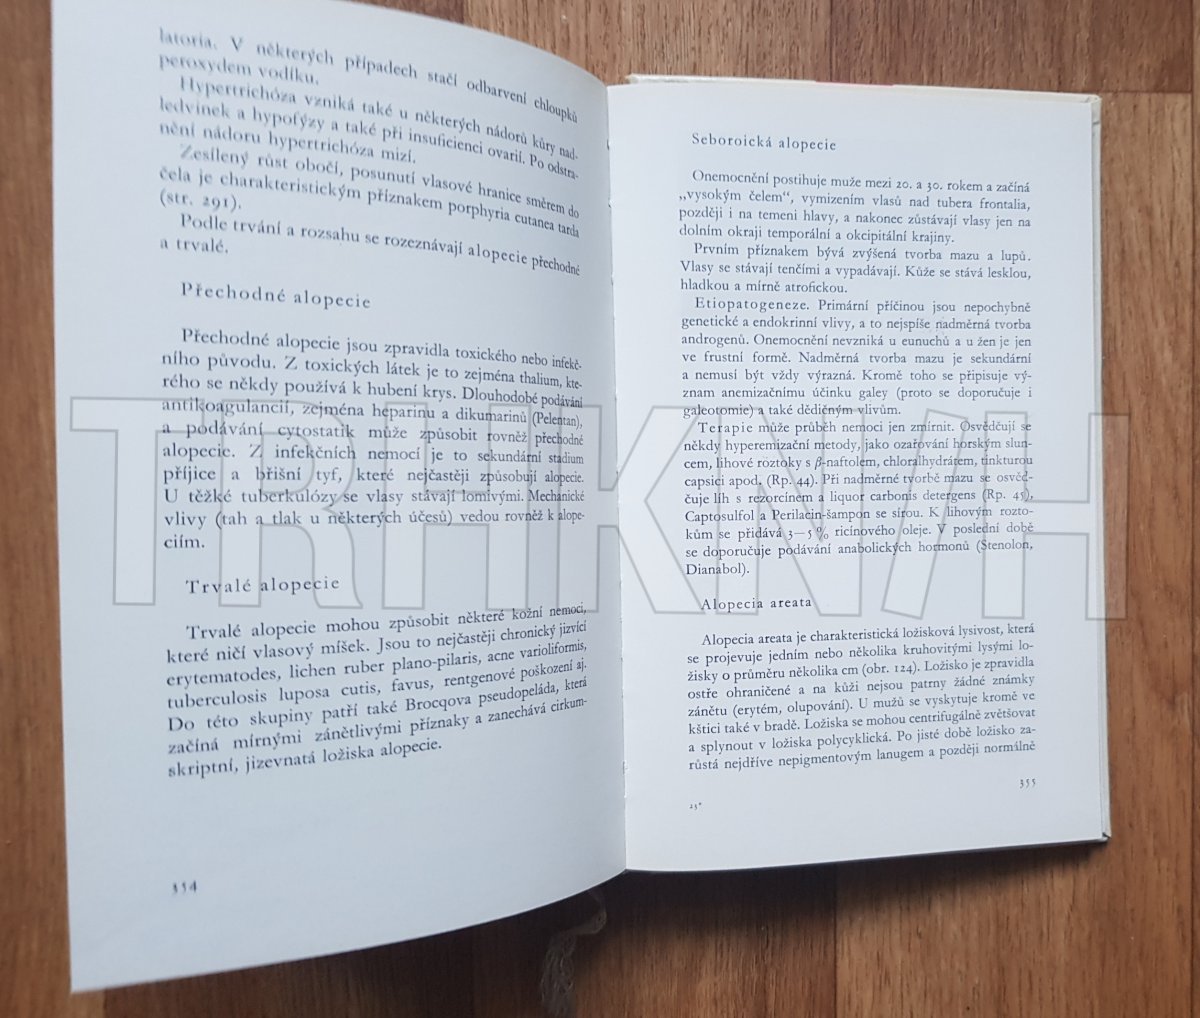 latoria. V některých případech stačí odbarvení chloupků
peroxydem vodíku.
Hypertrichóza vzniká také u některých nádorů kůry nad-
ledvinek a hypofýzy a také při insuficienci ovarií. Po odstra-
nění nádoru hypertrichóza mizí.
Zesílený růst obočí, posunutí vlasové hranice směrem do
čela je charakteristickým příznakem porphyria cutanea tarda
(str. 291).
Podle trvání a rozsahu se rozeznávají alopecie přechodné
a trvalé.
Přechodné alopecie
Přechodné alopecie jsou zpravidla toxického nebo infekč-
ního původu. Z toxických látek je to zejména thalium, kte-
rého se někdy používá k hubení krys. Dlouhodobé podávání
antikoagulancií, zejména heparinu a dikumarinů (Pelentan),
a podávání cytostatik může způsobit rovněž přechodné
alopecie. Z infekčních nemocí je to sekundární stadium
příjice a břišní tyf, které nejčastěji způsobují alopecie.
U těžké tuberkulózy se vlasy stávají lomivými. Mechanické
vlivy (tah a tlak u některých účesů) vedou rovněž k alope-
ciím.
Trvalé alopecie
Trvalé alopecie mohou způsobit některé kožní nemoci,
které ničí vlasový míšek. Jsou to nejčastěji chronický jizvící
erytematodes, lichen ruber plano-pilaris, acne varioliformis,
tuberculosis luposa cutis, favus, rentgenové poškození aj.
Do této skupiny patří také Brocqova pseudopeláda, která
začíná mírnými zánětlivými příznaky a zanechává cirkum-
skriptní, jizevnatá ložiska alopecie.
354
Seboroická alopecie
Onemocnění postihuje muže mezi 20. a 30. rokem a začíná
„vysokým čelem“, vymizením vlasů nad tubera frontalia,
později i na temeni hlavy, a nakonec zůstávají vlasy jen na
dolním okraji temporální a okcipitální krajiny.
Prvním příznakem bývá zvýšená tvorba mazu a lupů.
Vlasy se stávají tenčími a vypadávají. Kůže se stává lesklou,
hladkou a mírně atrofickou.
Etiopatogeneze. Primární příčinou jsou nepochybně
genetické a endokrinní vlivy, a to nejspíše nadměrná tvorba
androgenů. Onemocnění nevzniká u eunuchů a u žen je jen
ve frustní formě. Nadměrná tvorba mazu je sekundární
a nemusí být vždy výrazná. Kromě toho se připisuje vý-
znam anemizačnímu účinku galey (proto se doporučuje i
galeotomie) a také dědičným vlivům.
Terapie může průběh nemoci jen zmírnit. Osvědčují se
někdy hyperemizační metody, jako ozařování horským slun-
cem, lihové roztoky s β-naftolem, chloralhydrátem, tinkturou
capsici apod. (Rp. 44). Při nadměrné tvorbě mazu se osvěd-
čuje líh s rezorcínem a liquor carbonis detergens (Rp. 45),
Captosulfol a Perilacin-šampon se sírou. K lihovým rozto-
kům se přidává 3—5 % ricinového oleje. V poslední době
se doporučuje podávání anabolických hormonů (Stenolon,
Dianabol).
Alopecia areata
Alopecia areata je charakteristická ložisková lysivost, která
se projevuje jedním nebo několika kruhovitými lysými lo-
žisky o průměru několika cm (obr. 124). Ložisko je zpravidla
ostře ohraničené a na kůži nejsou patrny žádné známky
zánětu (erytém, olupování). U mužů se vyskytuje kromě ve
kštici také v bradě. Ložiska se mohou centrifugálně zvětšovat
a splynout v ložiska polycyklická. Po jisté době ložisko za-
růstá nejdříve nepigmentovým lanugem a později normálně
355
23*
TRHKNIH